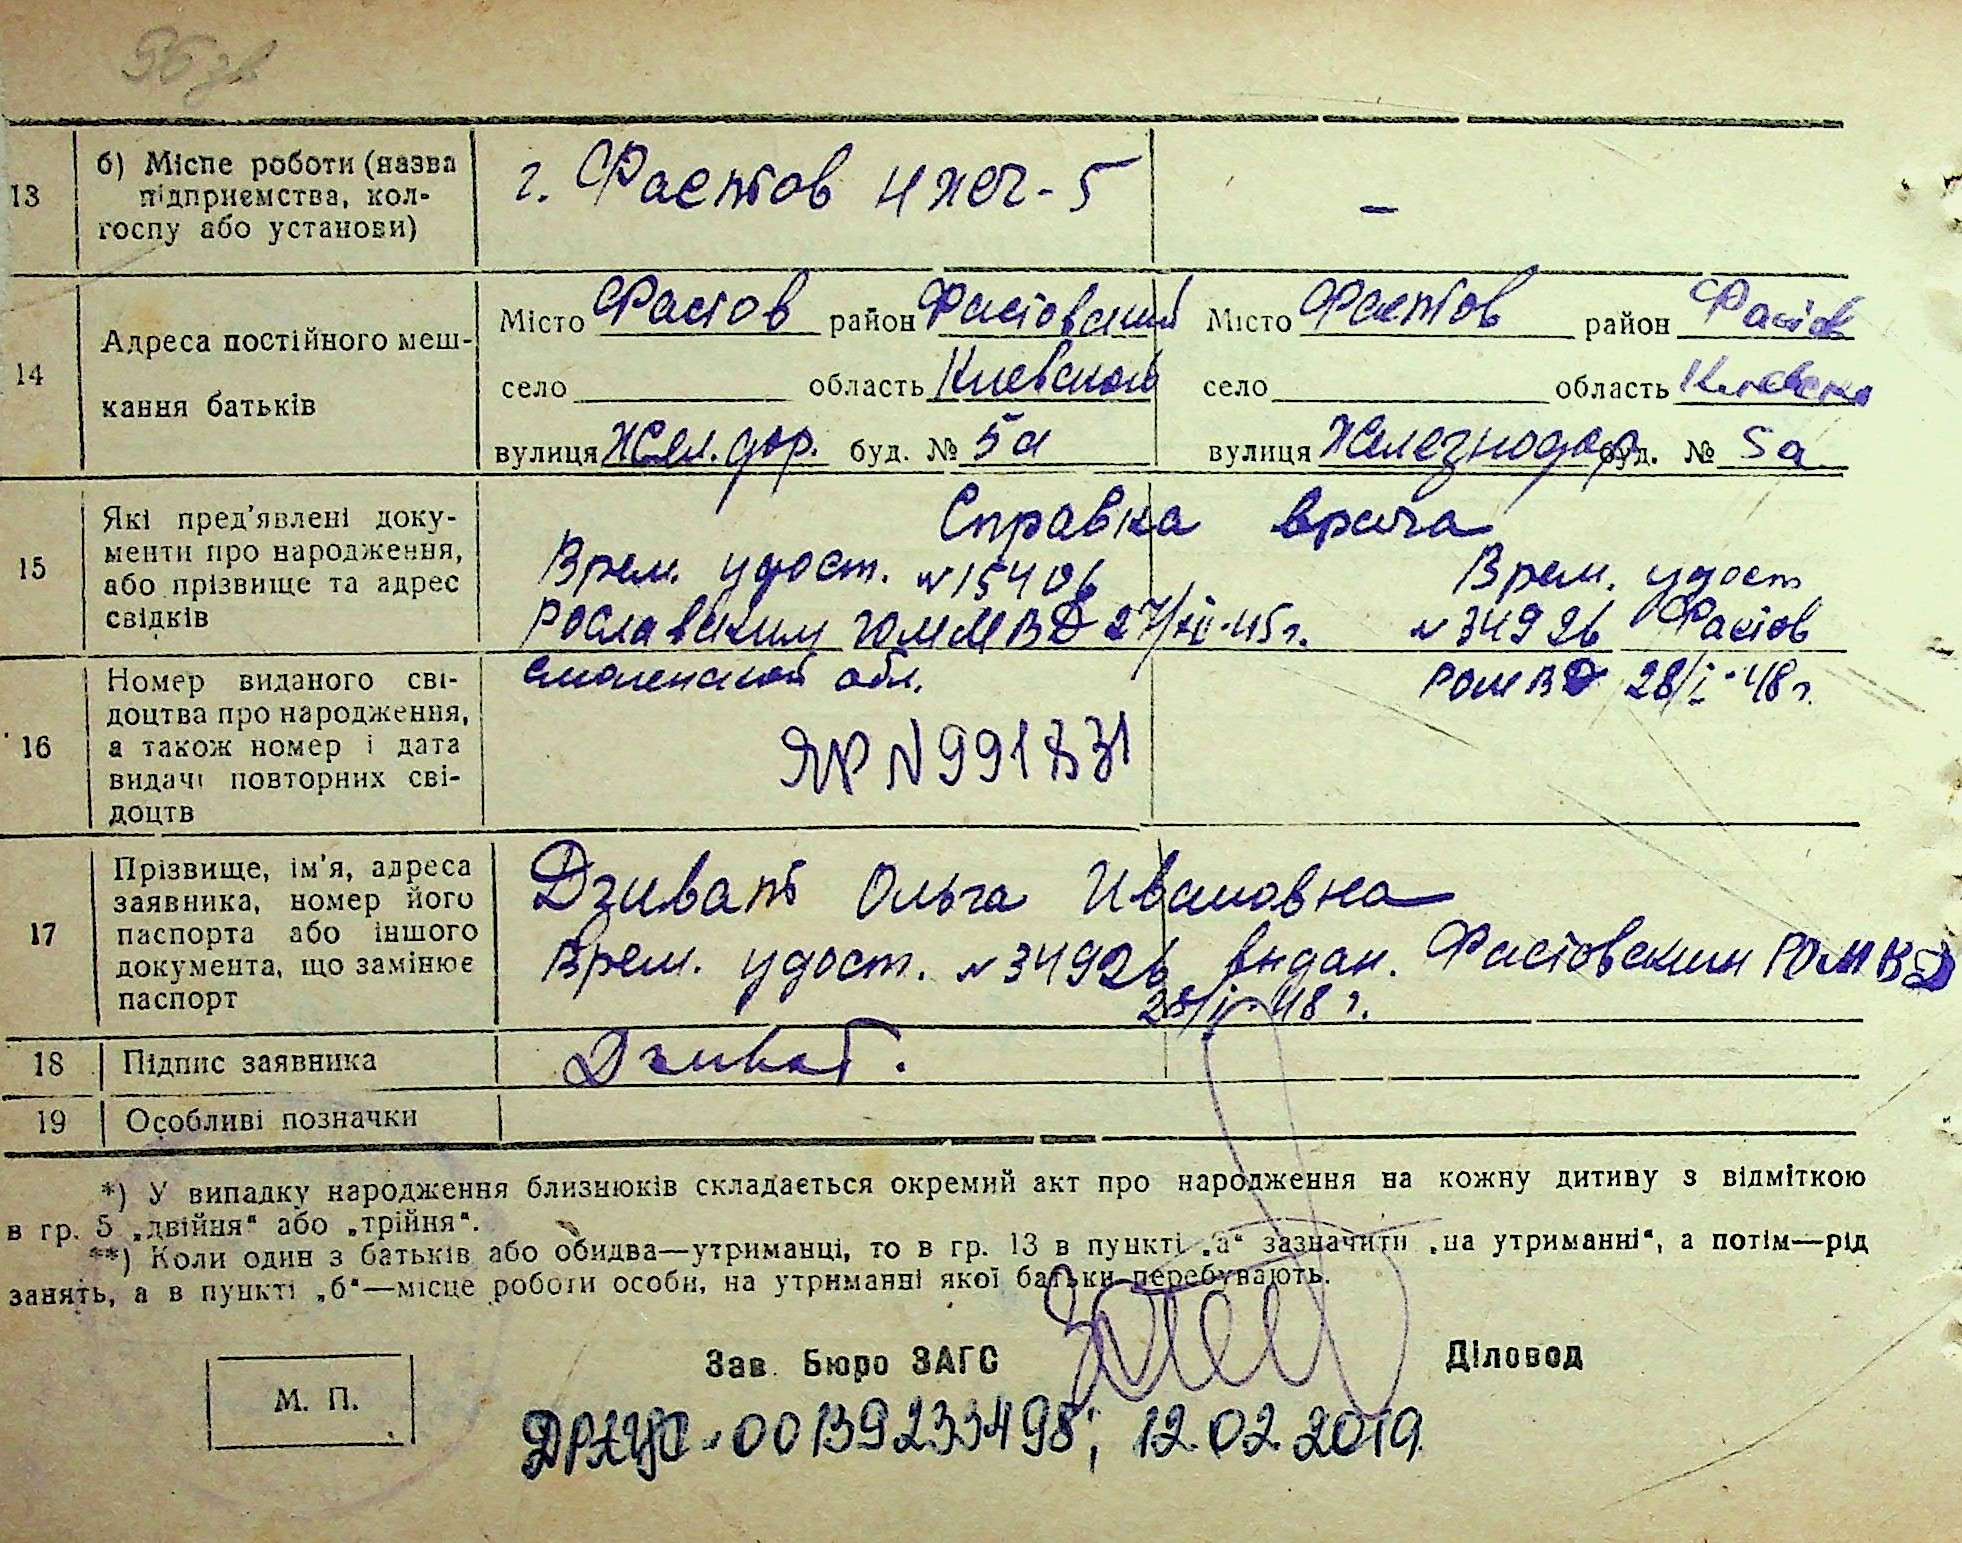 96 зв
13
б) Місце роботи (назва
підприємства, кол-
госпу або установи)
г. Фастов НЖСЧ-5
—
14
Адреса постійного меш-
кання батьків
Місто Фастов район Фастовский
село область Киевской
вулиця Жел.дор. буд. № 5а
Місто Фастов район Фастов
село область Киевско
вулиця Железнодор буд. № 5а
15
Які пред'явлені доку-
менти про народження,
або прізвище та адрес
свідків
Справка врача
Врем. удост. №154126
Рославским ГОМ МВД 27/XII-45г.
Смоленской обл.
Врем. удост
№ 34926 Фастов
РОМВД 28/I-48г.
16
Номер виданого сві-
доцтва про народження,
а також номер і дата
видачі повторних сві-
доцтв
ЯР N 991831
17
Прізвище, ім'я, адреса
заявника, номер його
паспорта або іншого
документа, що замінює
паспорт
Дзиват Ольга Ивановна
Врем. удост. №34926 выдан. Фастовским РОМВД
28/I-48 г.
18
Підпис заявника
Дзиват.
19
Особливі позначки
*) У випадку народження близнюків складається окремий акт про народження на кожну дитину з відміткою
в гр. 5 „двійня" або „трійня".
**) Коли один з батьків або обидва—утриманці, то в гр. 13 в пункті „а" зазначити „на утриманні", а потім—рід
занять, а в пункті „б"—місце роботи особи, на утриманні якої батьки перебувають.
Зав. Бюро ЗАГС
Діловод
М. П.
ДРАЦС-00139233498; 12.02.2019